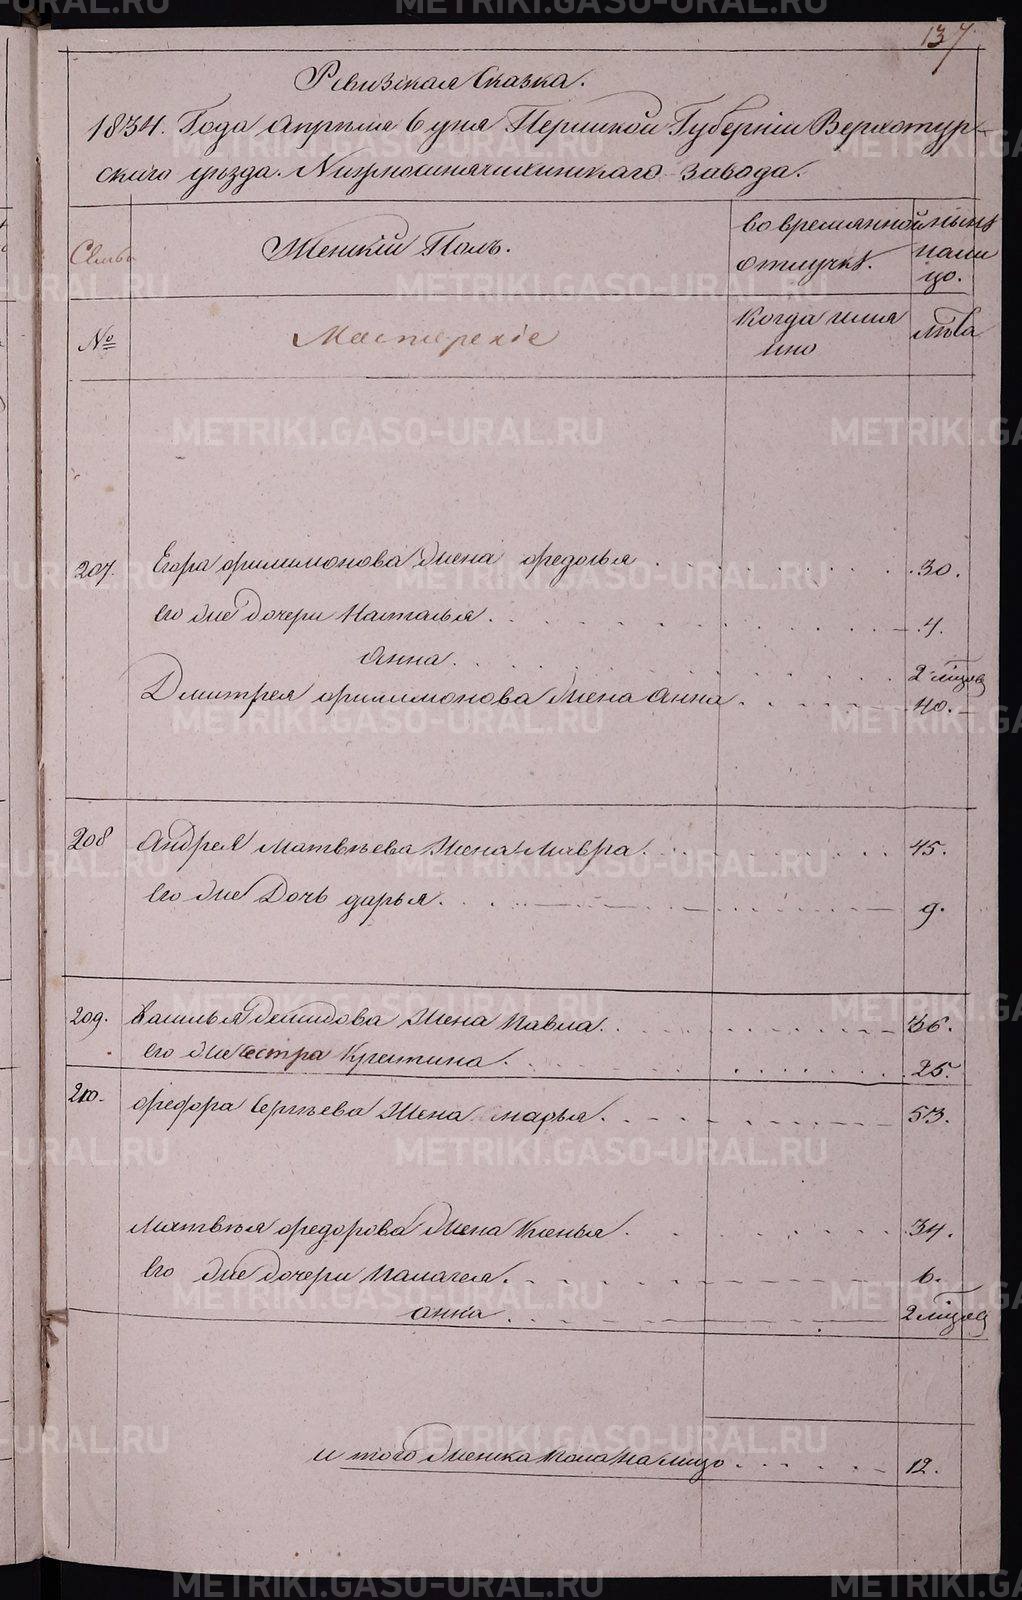 137
Ревизская Сказка.
1834. Года Апреля 6 дня Пермской Губернии Верхотур-
скаго уезда. Нижнесинячихинскаго завода.
Семьи
Женскій Полъ.
во времянной
отлучкѣ.
нынѣ
на ли
цо.
№
Мастерскіе
Когда имя
нно
лѣта
207. Егора филимонова жена федосья 30.
его же дочери Наталья. 4.
Анна. 2 мѣсяц
Дмитрея филимонова жена Анна 40.
208 Андрея матвѣева жена Мавра. 45.
его же Дочь дарья. 9.
209. Василья Демидова жена Павла. 36.
его же сестра Крестина. 25.
210. федора Сергѣева жена марья. 53.
матвѣя федорова жена Ксенья. 34.
его же дочери Палагея. 6.
анна. 2 мѣсяц
и того женска пола на лицо 12.
METRIKI.GASO-URAL.RU